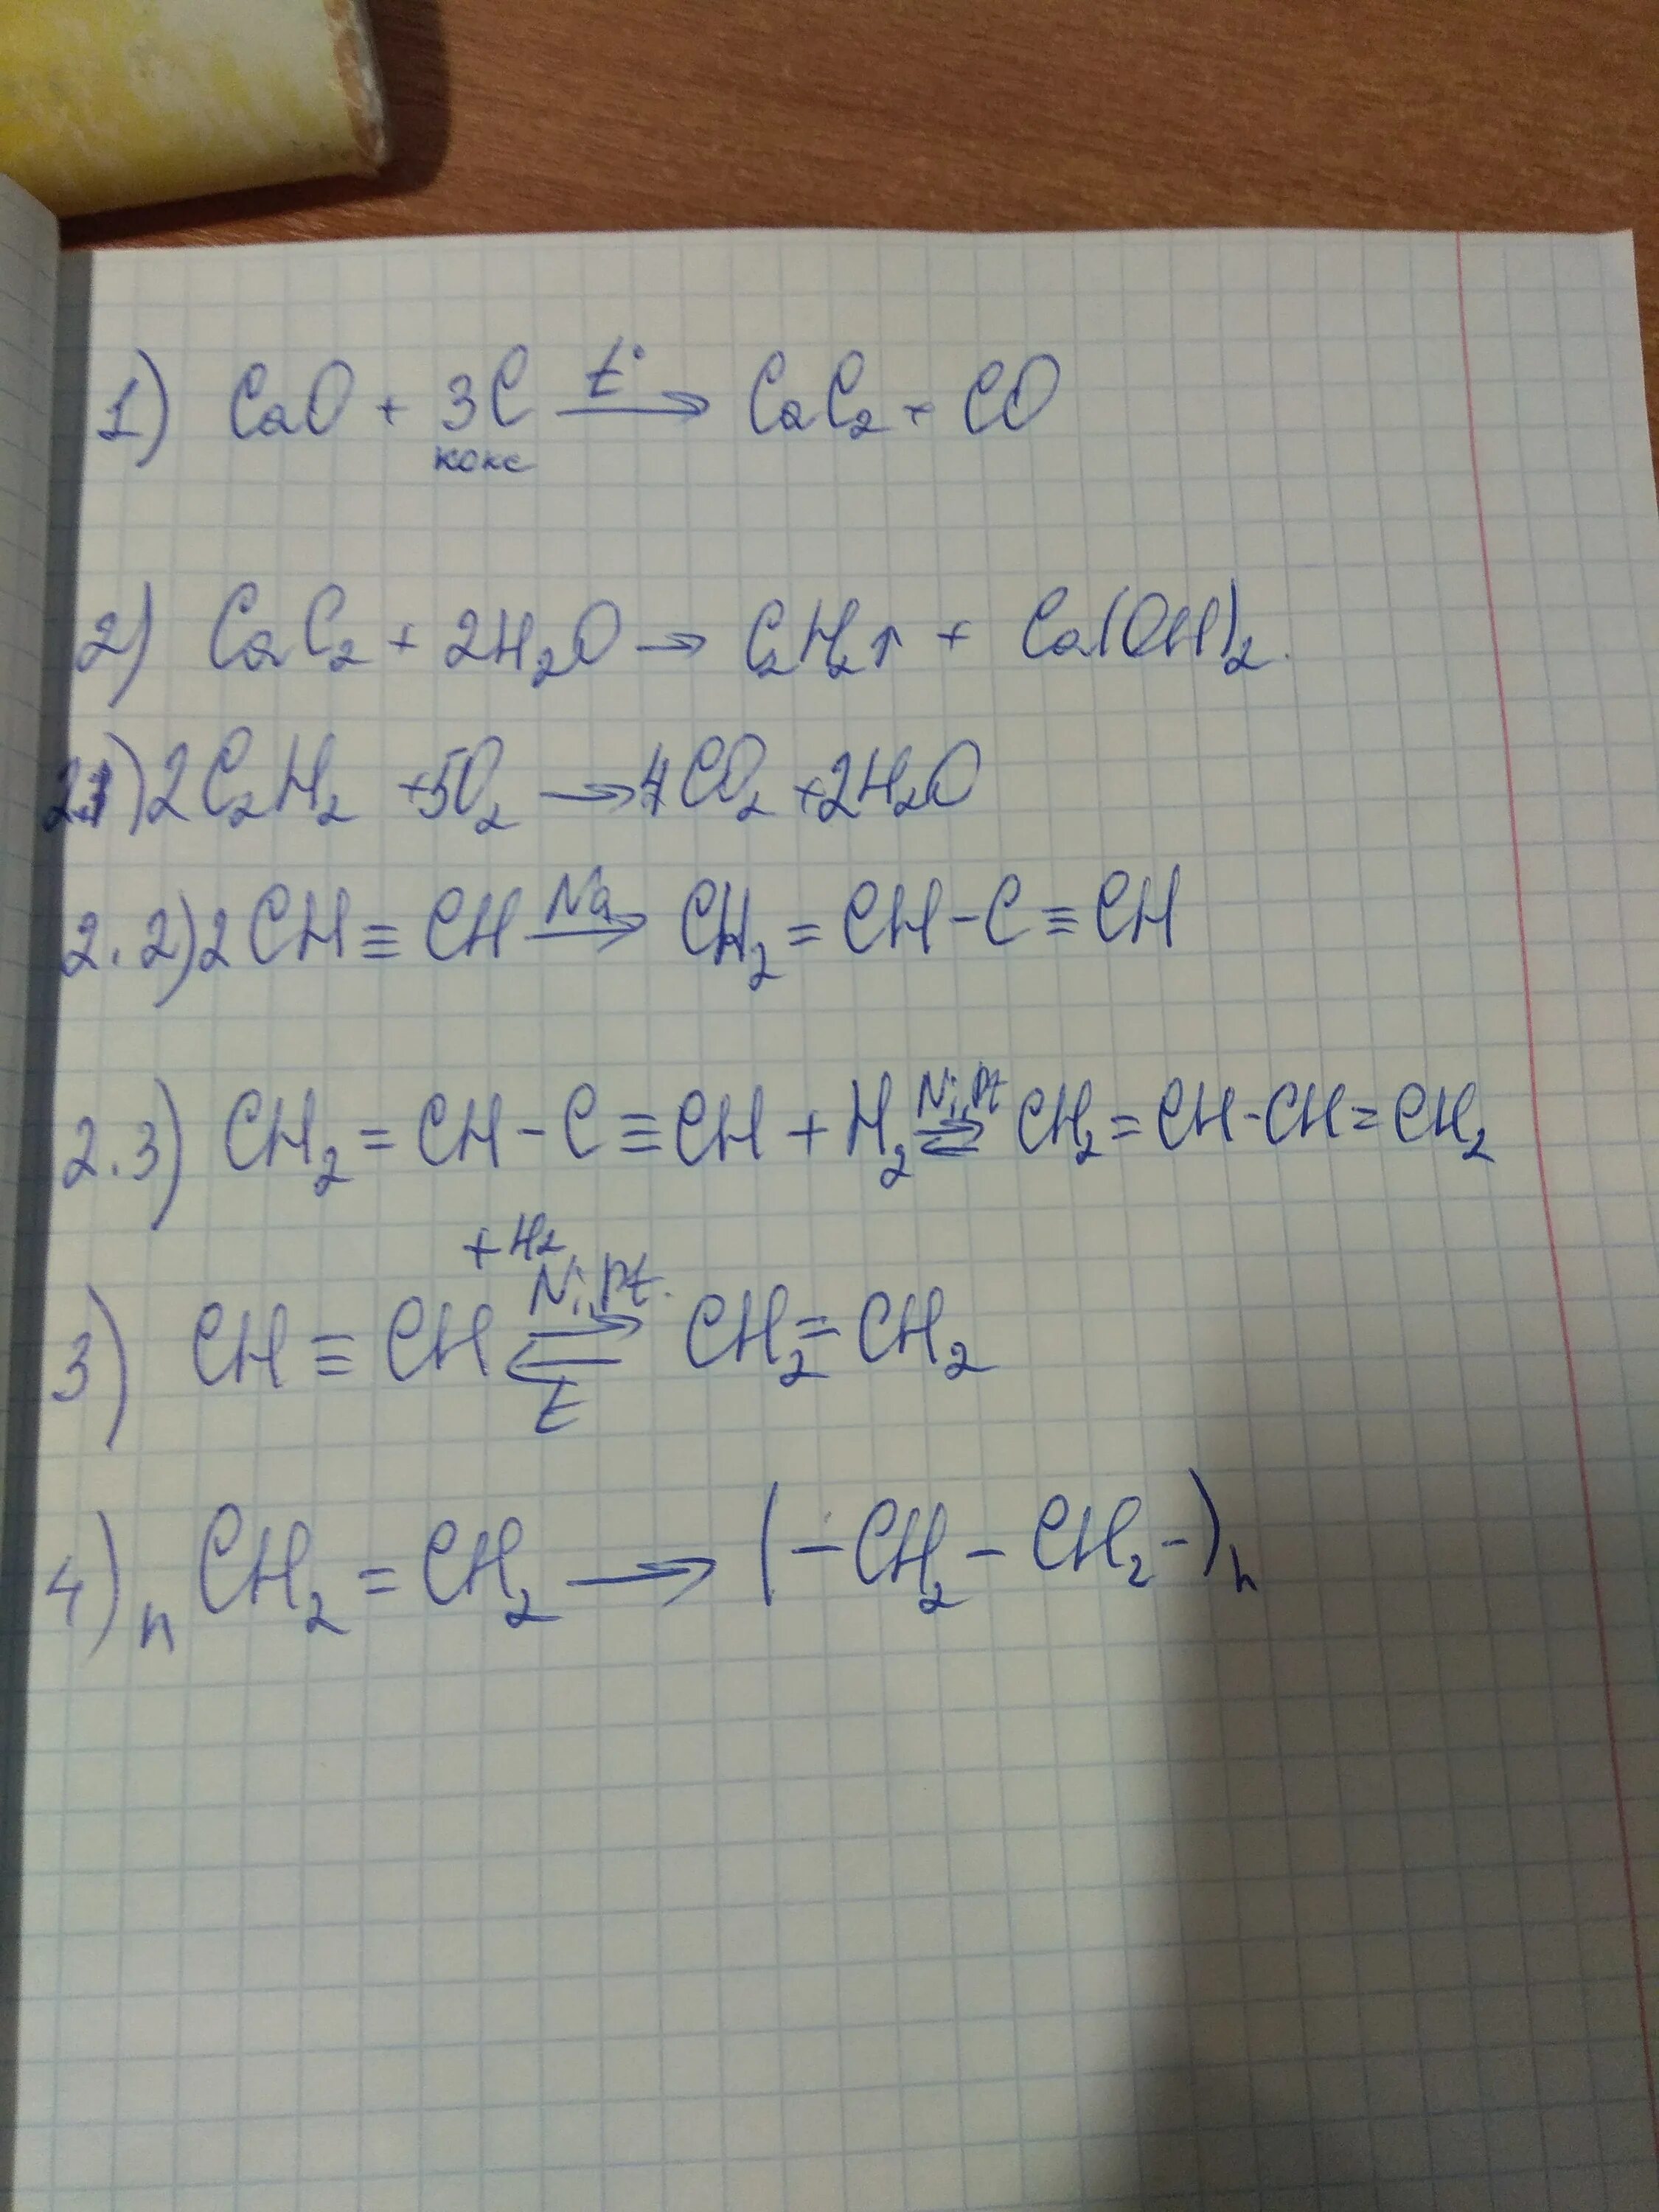 1) CaO + 3C t° → CaC₂ + CO
кокс
2) CaC₂ + 2H₂O → C₂H₂↑ + Ca(OH)₂.
2.1) 2C₂H₂ + 5O₂ → 4CO₂ + 2H₂O
2.2) 2CH≡CH Na → CH₂=CH-C≡CH
2.3) CH₂=CH-C≡CH + H₂ Ni,Pt ⇌ CH₂=CH-CH=CH₂
+H₂
Ni,Pt.
3) CH≡CH ⇌ CH₂=CH₂
t
4) n CH₂=CH₂ → (-CH₂-CH₂-)n